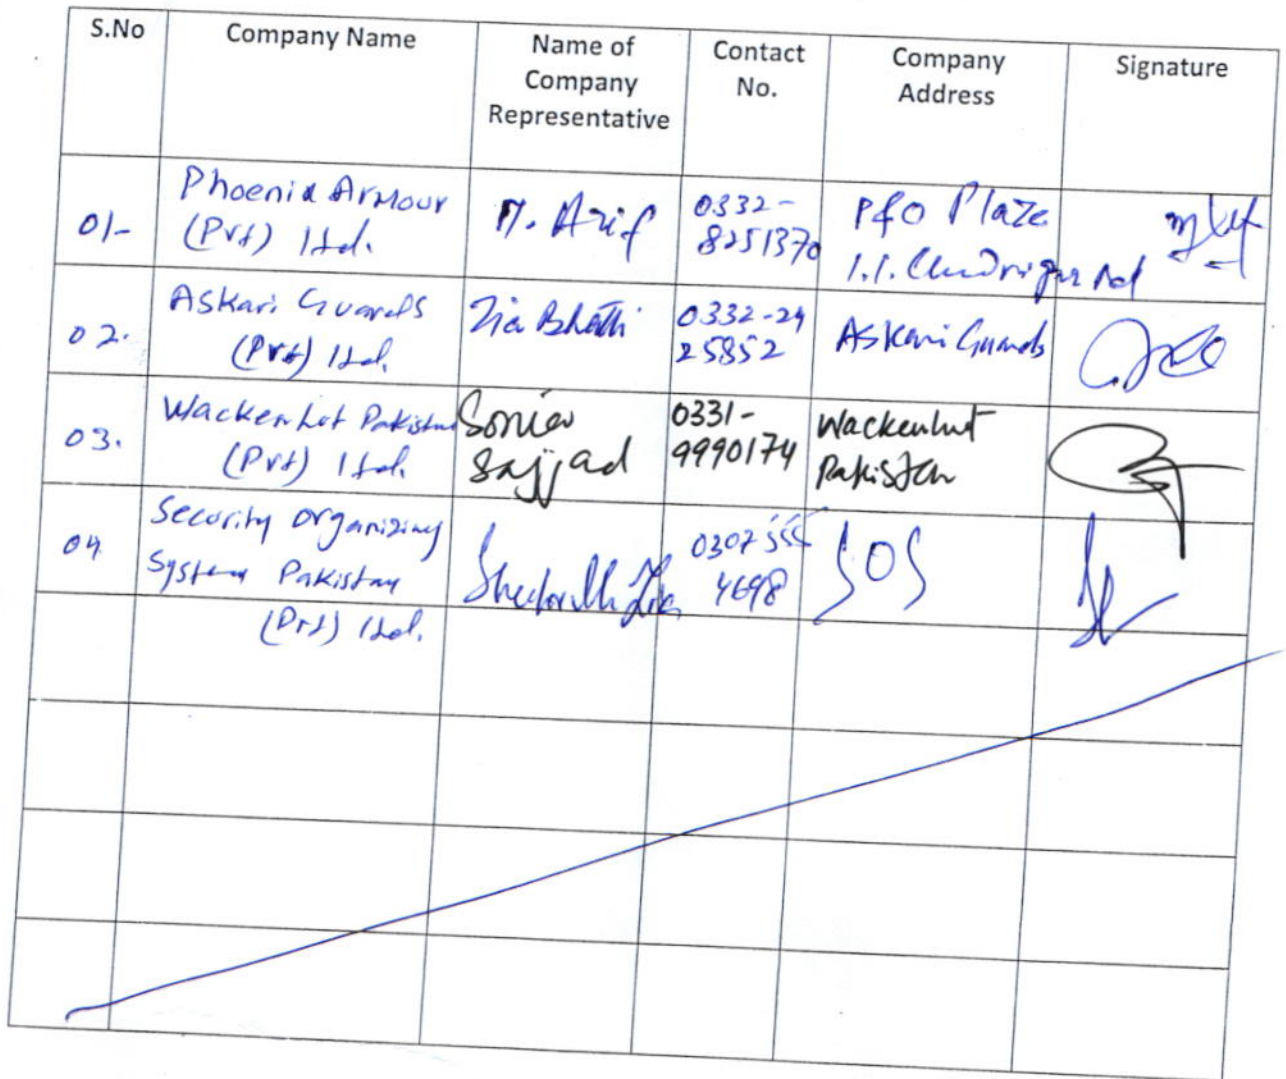 S.No
Company Name
Name of
Company
Representative
Contact
No.
Company
Address
Signature
01-
Phoenix Armour
(Pvt) Ltd.
M. Arif
0332-
8251370
PfO Plaza
I.I. Chundrigar Rd
02.
Askari Guards
(Pvt) Ltd.
Zia Bhatti
0332-24
25852
Askari Guards
03.
Wackenhut Pakistan
(Pvt) Ltd.
Sonia
Sajjad
0331-
9990174
Wackenhut
Pakistan
04.
Security Organizing
System Pakistan
(Pvt) Ltd.
0307 555
4698
SOS